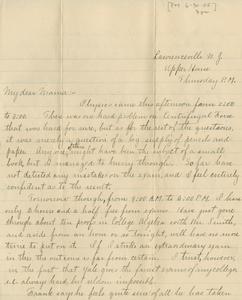 [Pos 6-20-05]
Lawrenceville N.J.
Upper House
Thursday P.M.
My dear Mama:-
Physics came this afternoon from 2:00
to 5:00. There was one hard problem on Centrifugal Force
that was hard for sure, but as for the rest of the questions,
it was merely a question of a big supply of pencils and
paper. Any other might have been the weight of a small
book but I managed to hurry through. So far have
not detected any mistakes on the exam, and feel entirely
confident as to the result.
Tomorrow though, from 9:00 A.M. to 6:00 P.M. I have
only 2 hours and a half free from exams. Have just gone
through about ten pages in College Algebra with Mr. Smith,
and aside from an hour or so tonight, will have no more
time to put on it. If I strike an extraordinary exam
in this the outcome is far from certain. I trust, however,
in the fact that Yale gives the fairest exams of any college
i.e. always hard but seldom impossible.
Frank says he feels quite sure of all he has taken